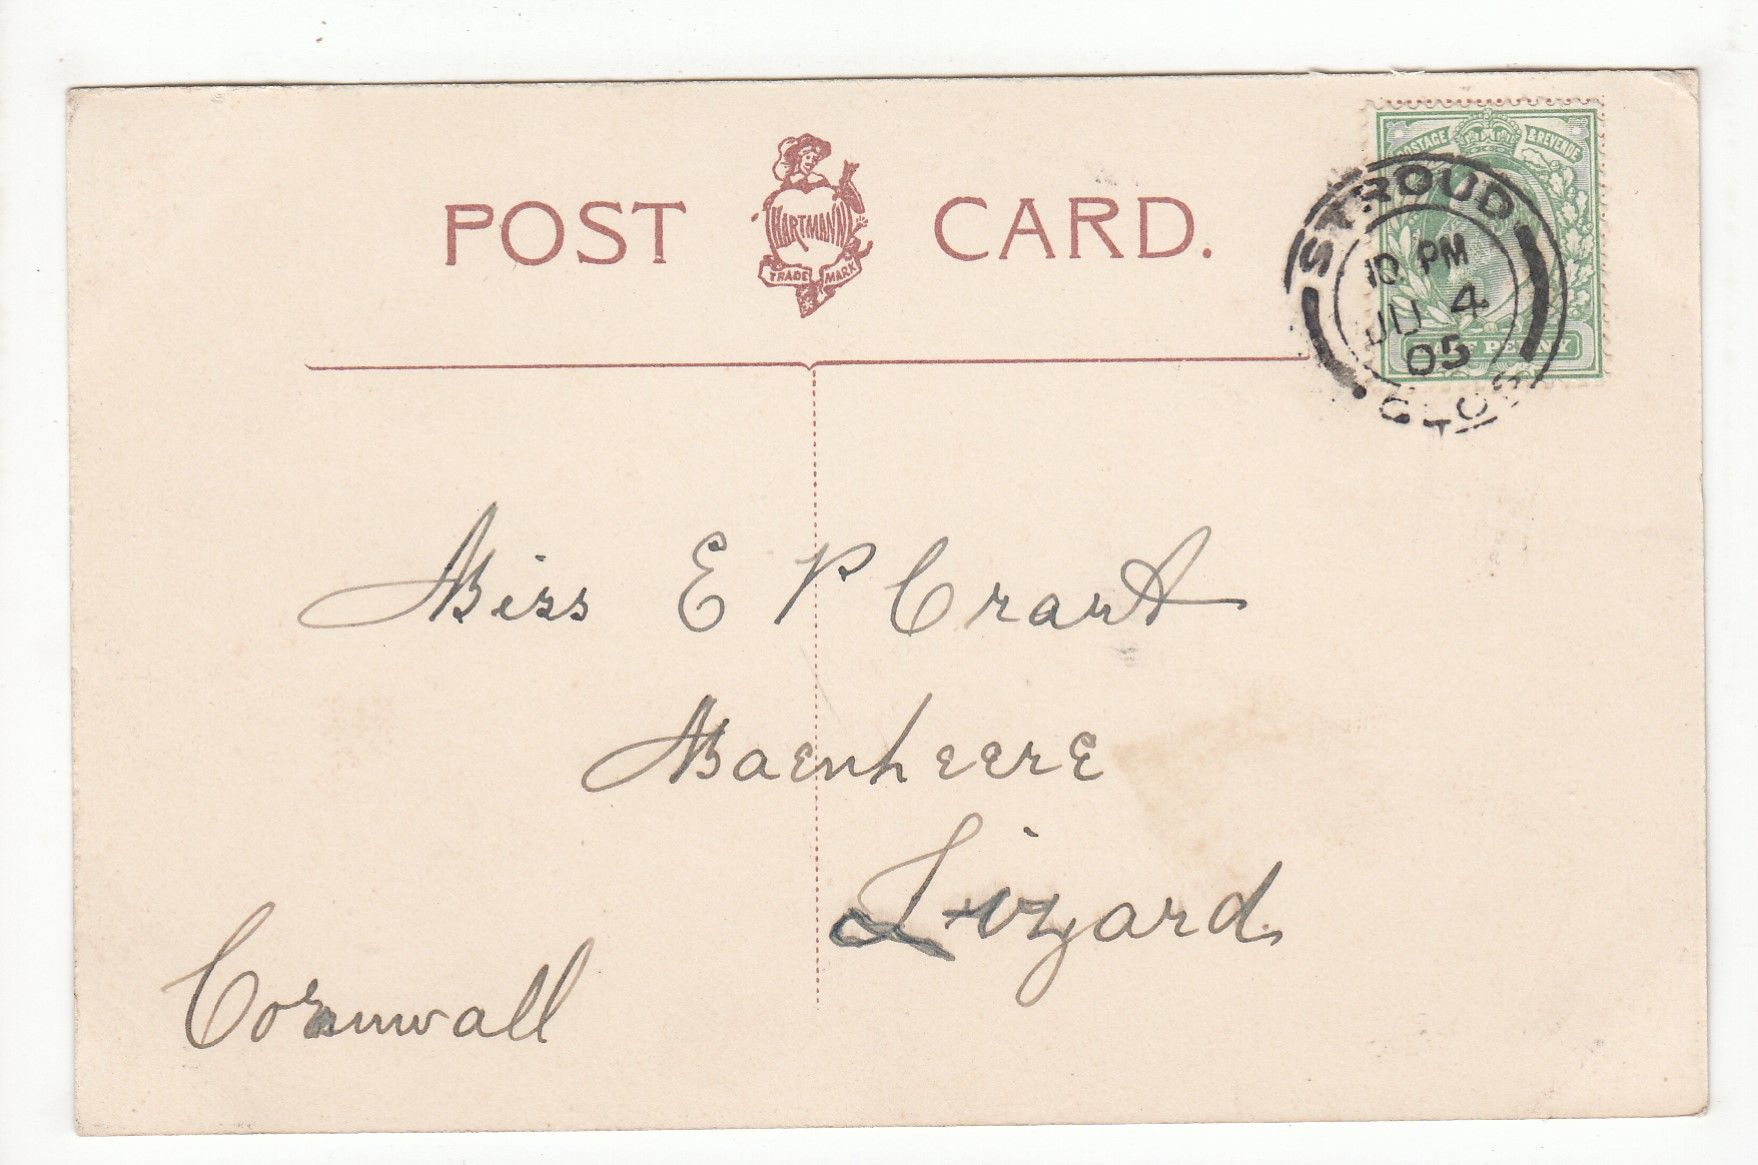 POST CARD.
HARTMANN
TRADE MARK
POSTAGE & REVENUE
STROUD
10 PM
JU 4
05
GLOS
Miss E P Crant
Maenheere
Lizard.
Cornwall